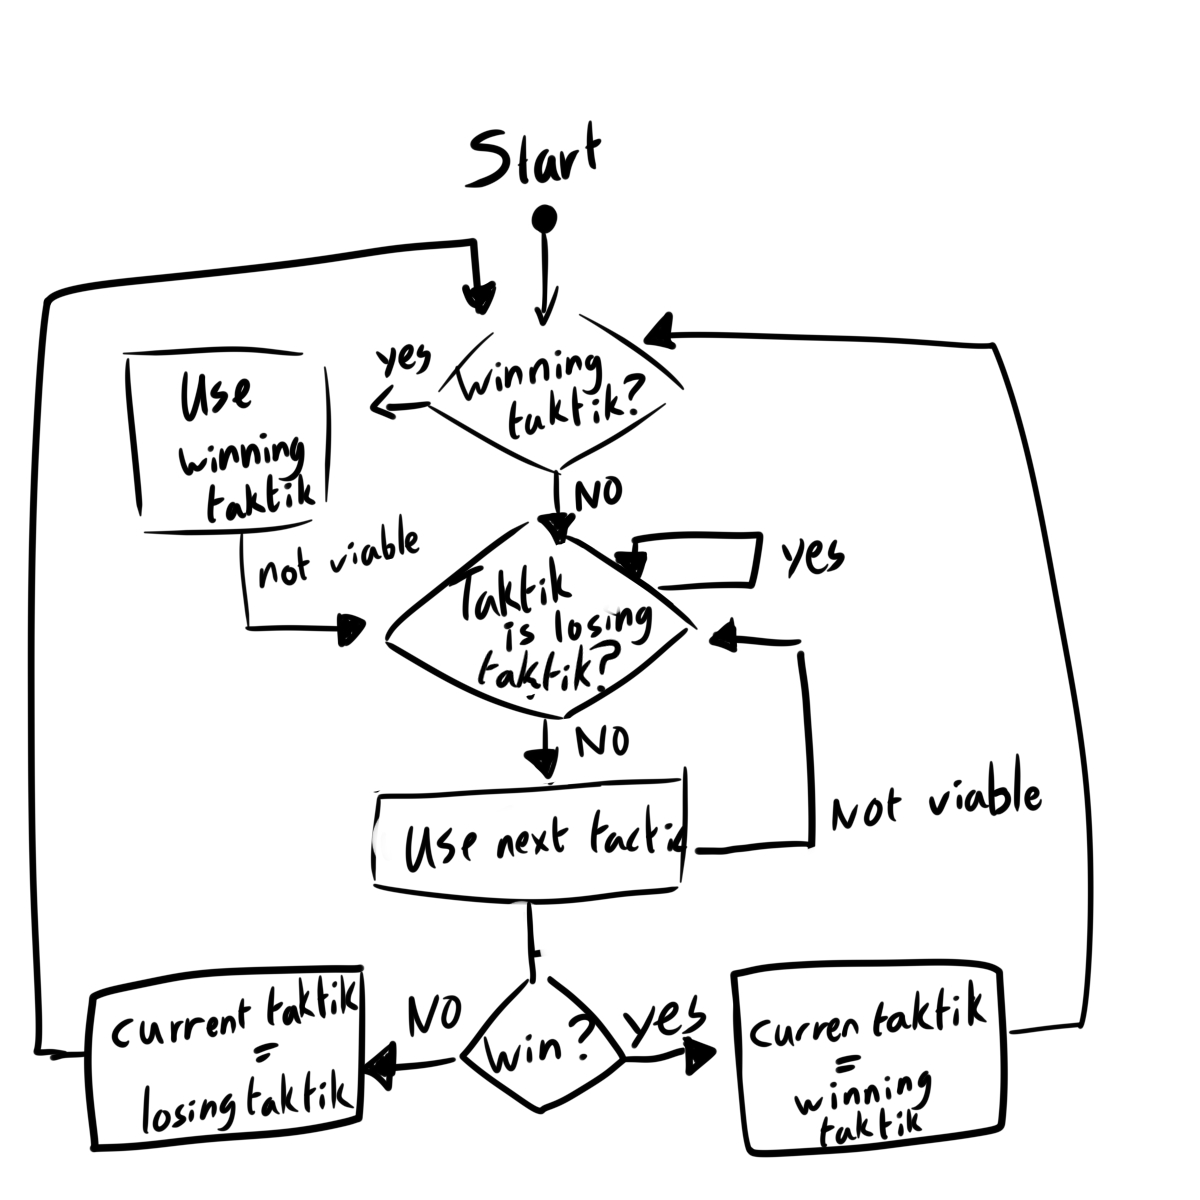 Start
yes
Winning
taktik?
Use
winning
taktik
NO
not viable
yes
Taktik
is losing
taktik?
NO
Not viable
Use next tactic
NO
yes
win?
current taktik
=
losing taktik
curren taktik
=
winning
taktik